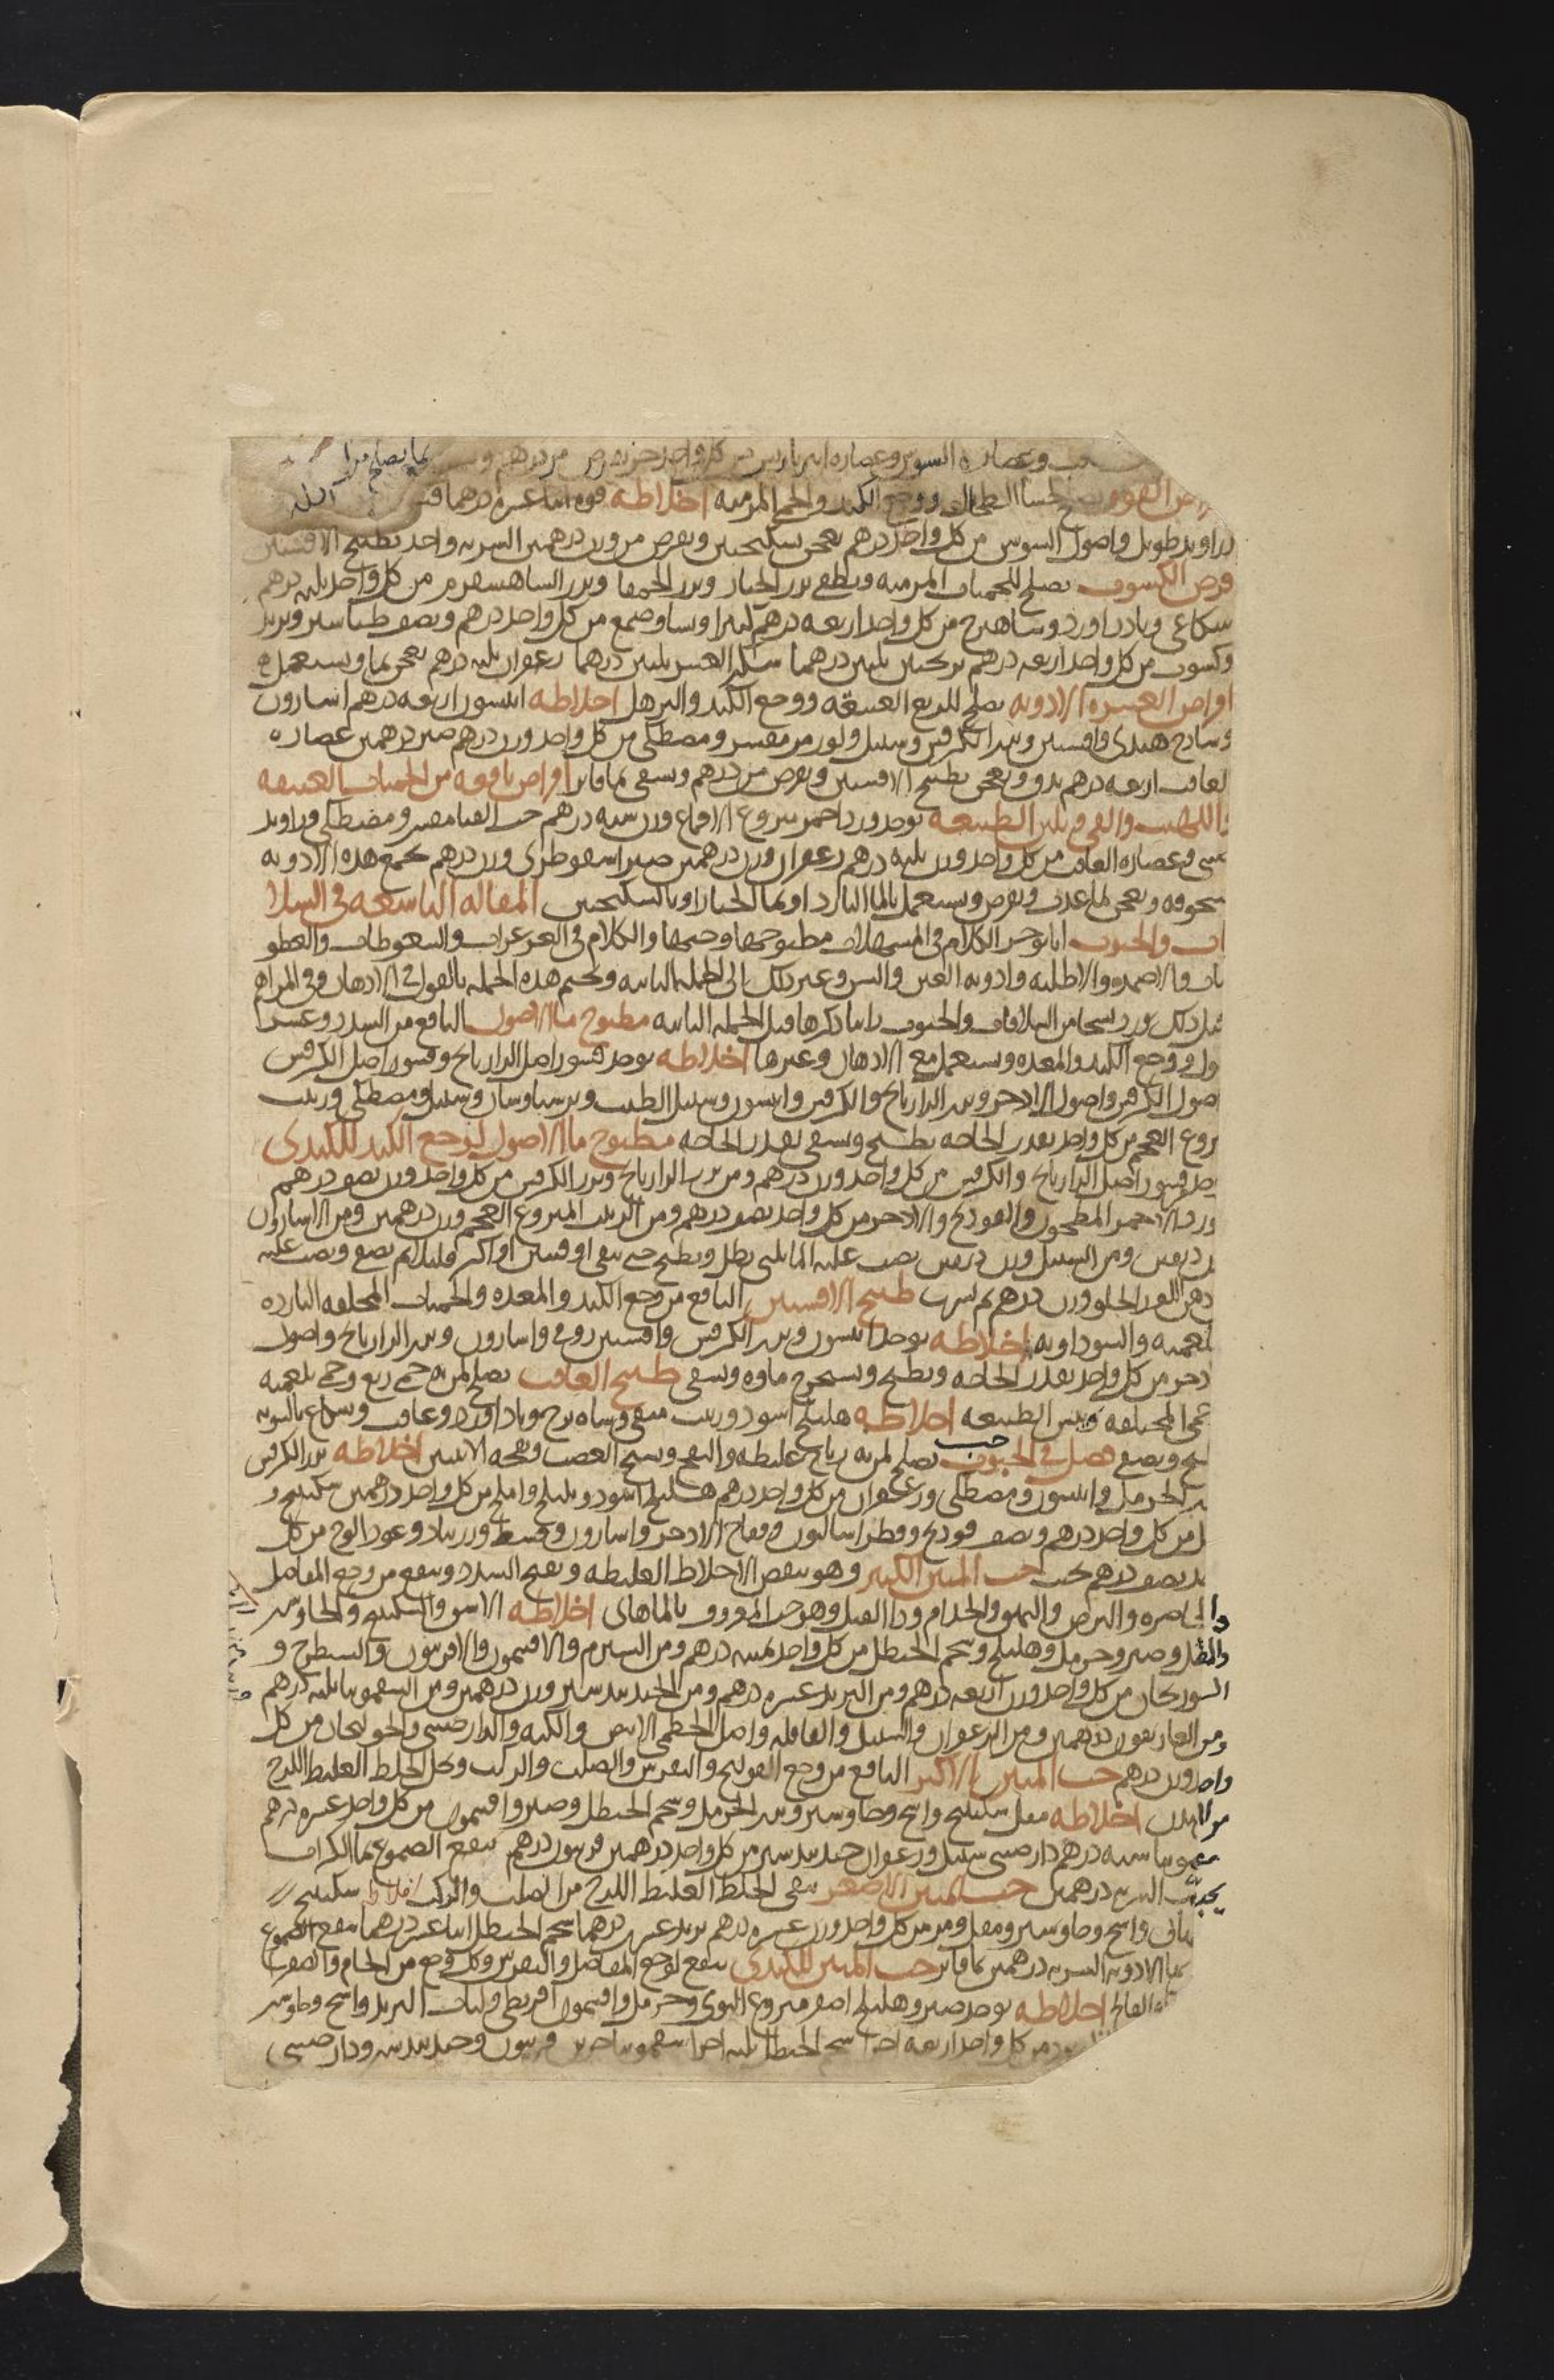 وعصاره السوس وعصاره امبرباريس من كل واحد جزء يقرص من درهم
الطحال ووجع الكبد والحمى المزمنه اخلاطه فوه اثنا عشره درهما
زراوند طويل واصول السوس من كل واحد درهم يعجن بسكنجبين ويقرص من وزن درهمين الشربه واحد بطبيخ الافسنتين
قرص الكشوث يصلح للحميات المزمنه ويطفي بزر الخيار وبزر الحمقا وبزر الشاهسفرم من كل واحد ثلثه درهم
شكاعى وباذاورد وشاهترج من كل واحد اربعه درهم كثيرا ونشا وصمغ من كل واحد درهم ونصف طباشير وبزر
وكشوث من كل واحد اربعه درهم ترنجبين ثلثين درهما سكر العشر ثلثين درهما زعفران ثلثه درهم يعجن بما ويستعمل
اقراص العشره الادويه يصلح للربع العتيقه ووجع الكبد والترهل اخلاطه انيسون اربعه درهم اسارون
وساذج هندي وافسنتين وبزر الكرفس وسنبل ولوز مر مقشر ومصطكى من كل واحد وزن درهم صبر درهمين عصاره
الغافت اربعه درهم يدق ويعجن بطبيخ الافسنتين ويقرص من درهم ويسقى بما فاتر اقراص نافعه من الحميات العتيقه
واللهيب والقي وتلين الطبيعه يوخذ ورد احمر منزوع الاقماع وزن سته درهم حب القثا مقشر ومصطكى وراوند
صيني وعصاره الغافت من كل واحد وزن ثلثه درهم زعفران وزن درهمين صبر اسقوطرى وزن درهم يجمع هذه الادويه
مسحوقه ويعجن بما عذب ويقرص ويستعمل بالما البارد او بما الخيار او بالسكنجبين المقاله التاسعه في السلا
قات والحبوب انا نوخر الكلام في المسهلات مطبوخها وحبها والكلام في الغرغرات والسعوطات والعطو
سات والاضمده والاطليه وادويه العين والسن وغير ذلك الى الجمله الثانيه ونختم هذه الجمله بالقول في الادهان وفي المراهم
قبل ذلك نورد نسخا من السلاقات والحبوب راينا ذكرها قبل الجمله الثانيه مطبوخ ما الاصول النافع من السدد وعسر
البول ووجع الكبد والمعده ويستعمل مع الادهان وغيرها اخلاطه يوخذ قشور اصل الرازيانج وقشور اصل الكرفس
اصول الكرفس واصول الاذخر وبزر الرازيانج والكرفس وانيسون وسنبل الطيب وبرسياوشان وسنبل ومصطكى وزبيب
منزوع العجم من كل واحد بقدر الحاجه يطبخ ويسقى بقدر الحاجه مطبوخ ما الاصول لوجع الكبد للكندى
يوخذ قشور اصل الرازيانج والكرفس من كل واحد وزن درهم ومن بزر الرازيانج وبزر الكرفس من كل واحد وزن نصف درهم
والفودنج والاذخر من كل واحد نصف درهم ومن الزبيب المنزوع العجم وزن درهمين ومن الاسارون
ومن السنبل وزن دانقين يصب عليه الما ثلثي رطل ويطبخ حتى يبقى اوقيتين او اكثر قليلا ثم يصفى ويصب عليه
دهن اللوز الحلو وزن درهم ثم يشرب طبيخ الافسنتين النافع من وجع الكبد والمعده والحميات المختلفه البارده
البلغميه والسوداويه اخلاطه يوخذ انيسون وبزر الكرفس وافسنتين رومى واسارون وبزر الرازيانج واصول
الاذخر من كل واحد بقدر الحاجه ويطبخ ويستخرج ماوه ويسقى طبيخ الغافت يصلح لمن به حمى ربع وحمى بلغميه
الحمى المختلفه ويبس الطبيعه اخلاطه هليلج اسود وزبيب منقى وشاهترج وباذاورد وغافت وشكاعى بالسويه
يطبخ ويصفى فصل في الحبوب حب يصلح لمن به رياح غليظه والنفخ وتشنج العصب ونفخه الانثيين اخلاطه بزر الكرفس
بزر الحرمل وانيسون ومصطكى وزعفران من كل واحد درهم هليلج اسود وبليلج واملج من كل واحد درهمين سكبينج و
من كل واحد درهم ونصف فودنج وفطراساليون وفقاح الاذخر واسارون وقسط وزرنباد وعود الوج من كل
واحد نصف درهم يحبب حب المنتن الكبير وهو ينقض الاخلاط الغليظه ويفتح السدد وينفع من وجع المفاصل
والخاصره والبرص والبهق والجذام وداء الفيل وهو حب المعروف بالماهاني اخلاطه الاشق والسكبينج والجاوشير
والمقل وصبر وحرمل وهليلج وشحم الحنظل من كل واحد خمسه درهم ومن الشبرم والافتيمون والافربيون والشيطرج و
السورنجان من كل واحد وزن اربعه درهم ومن التربد عشره درهم ومن الجندبيدستر وزن درهمين ومن السقمونيا ثلثه درهم
ومن الغاريقون درهمين ومن الزعفران والسنبل والقاقله واصل الخطمى الابيض والكيه والدارصيني والخولنجان من كل
واحد وزن درهم حب المنتن الاكبر النافع من وجع القولنج والنقرس والصلب والركب ويحل الخلط الغليظ اللزج
من البدن اخلاطه مقل سكبينج واشج وجاوشير وبزر الحرمل وشحم الحنظل وصبر وافتيمون من كل واحد عشره درهم
سقمونيا سته درهم دارصيني سنبل وزعفران جندبيدستر من كل واحد درهمين فربيون درهم تنقع الصموغ بما الكراث
يحبب الشربه درهمين حب المنتن الاصغر ينقى الخلط الغليظ اللزج من الصلب والركب اخلاطه سكبينج
واشج وجاوشير ومقل ومر من كل واحد وزن عشره درهم تربد عشرين درهما شحم الحنظل اثنا عشر درهما تنقع الصموغ
بما الادويه الشربه درهمين بما فاتر حب المنتن للكندى ينفع لوجع المفاصل والنقرس وكل وجع من الخام والصفرا
والفالج اخلاطه يوخذ صبر وهليلج اصفر منزوع النوى وحرمل وافتيمون اقريطى ولباب التربد واشج وجاوشير
من كل واحد اربعه اجزا شحم الحنظل ثلثه اجزا سقمونيا جزين فربيون وجندبيدستر ودارصيني